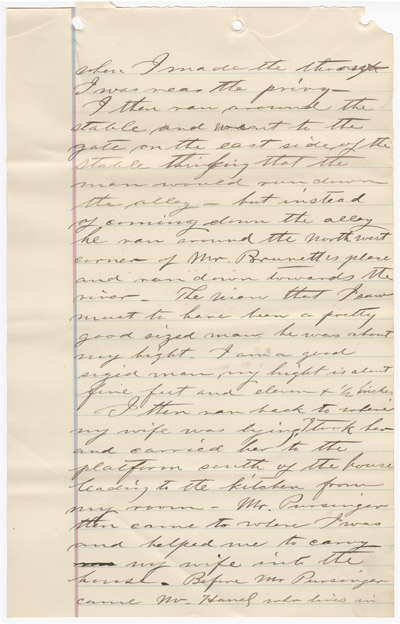 when I made the through
I was near the privy -
I then ran around the
stable and went to the
gate on the east side of the
stable thinking that the
man would run down
the alley - but instead
of coming down the alley
he ran around the northwest
corner of Mr Brunetts place
and ran down towards the
river - The man that I saw
must to have been a pretty
good sized man, he was about
my hight. I am a good
sized man, my hight is about
five feet and eleven & 1/2 inches
I then ran back to where
my wife was lying, took her
and carried her to the
platform south of the house
leading to the kitchen from
my room - Mr. Pursinger
then came to where I was
and helped me to carry
my wife into the
house. Before Mr Pursinger
came Mr. who lives in